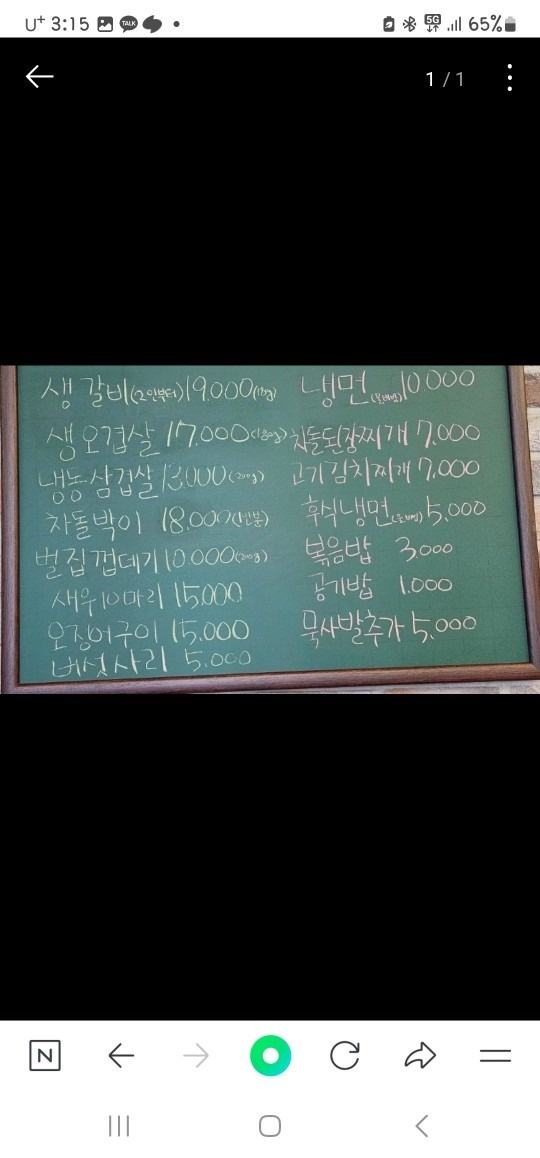 U+ 3:15 TALK 5G 65%
1 / 1
생갈비(2인부터)19,000
생오겹살 17,000(180g)
냉동삼겹살 13,000(200g)
차돌박이 18,000(1인분)
벌집껍데기 10,000(200g)
새우10마리 15,000
오징어구이 15,000
버섯사리 5,000
냉면 10,000
차돌된장찌개 7,000
고기김치찌개 7,000
후식냉면 5,000
볶음밥 3,000
공기밥 1,000
묵사발추가 5,000
N